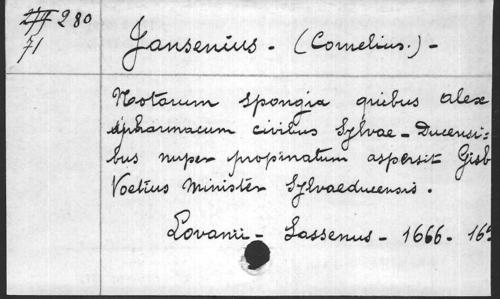 280
71
Jansenius - (Cornelius.) -
Notarum spongia quibus alex
ipharmacum civibus Sylvae - Ducensi-
bus nuper propinatum aspersit Gisb
Voetius minister Sylvaeducensis.
Lovanii - Sassenus - 1666 -